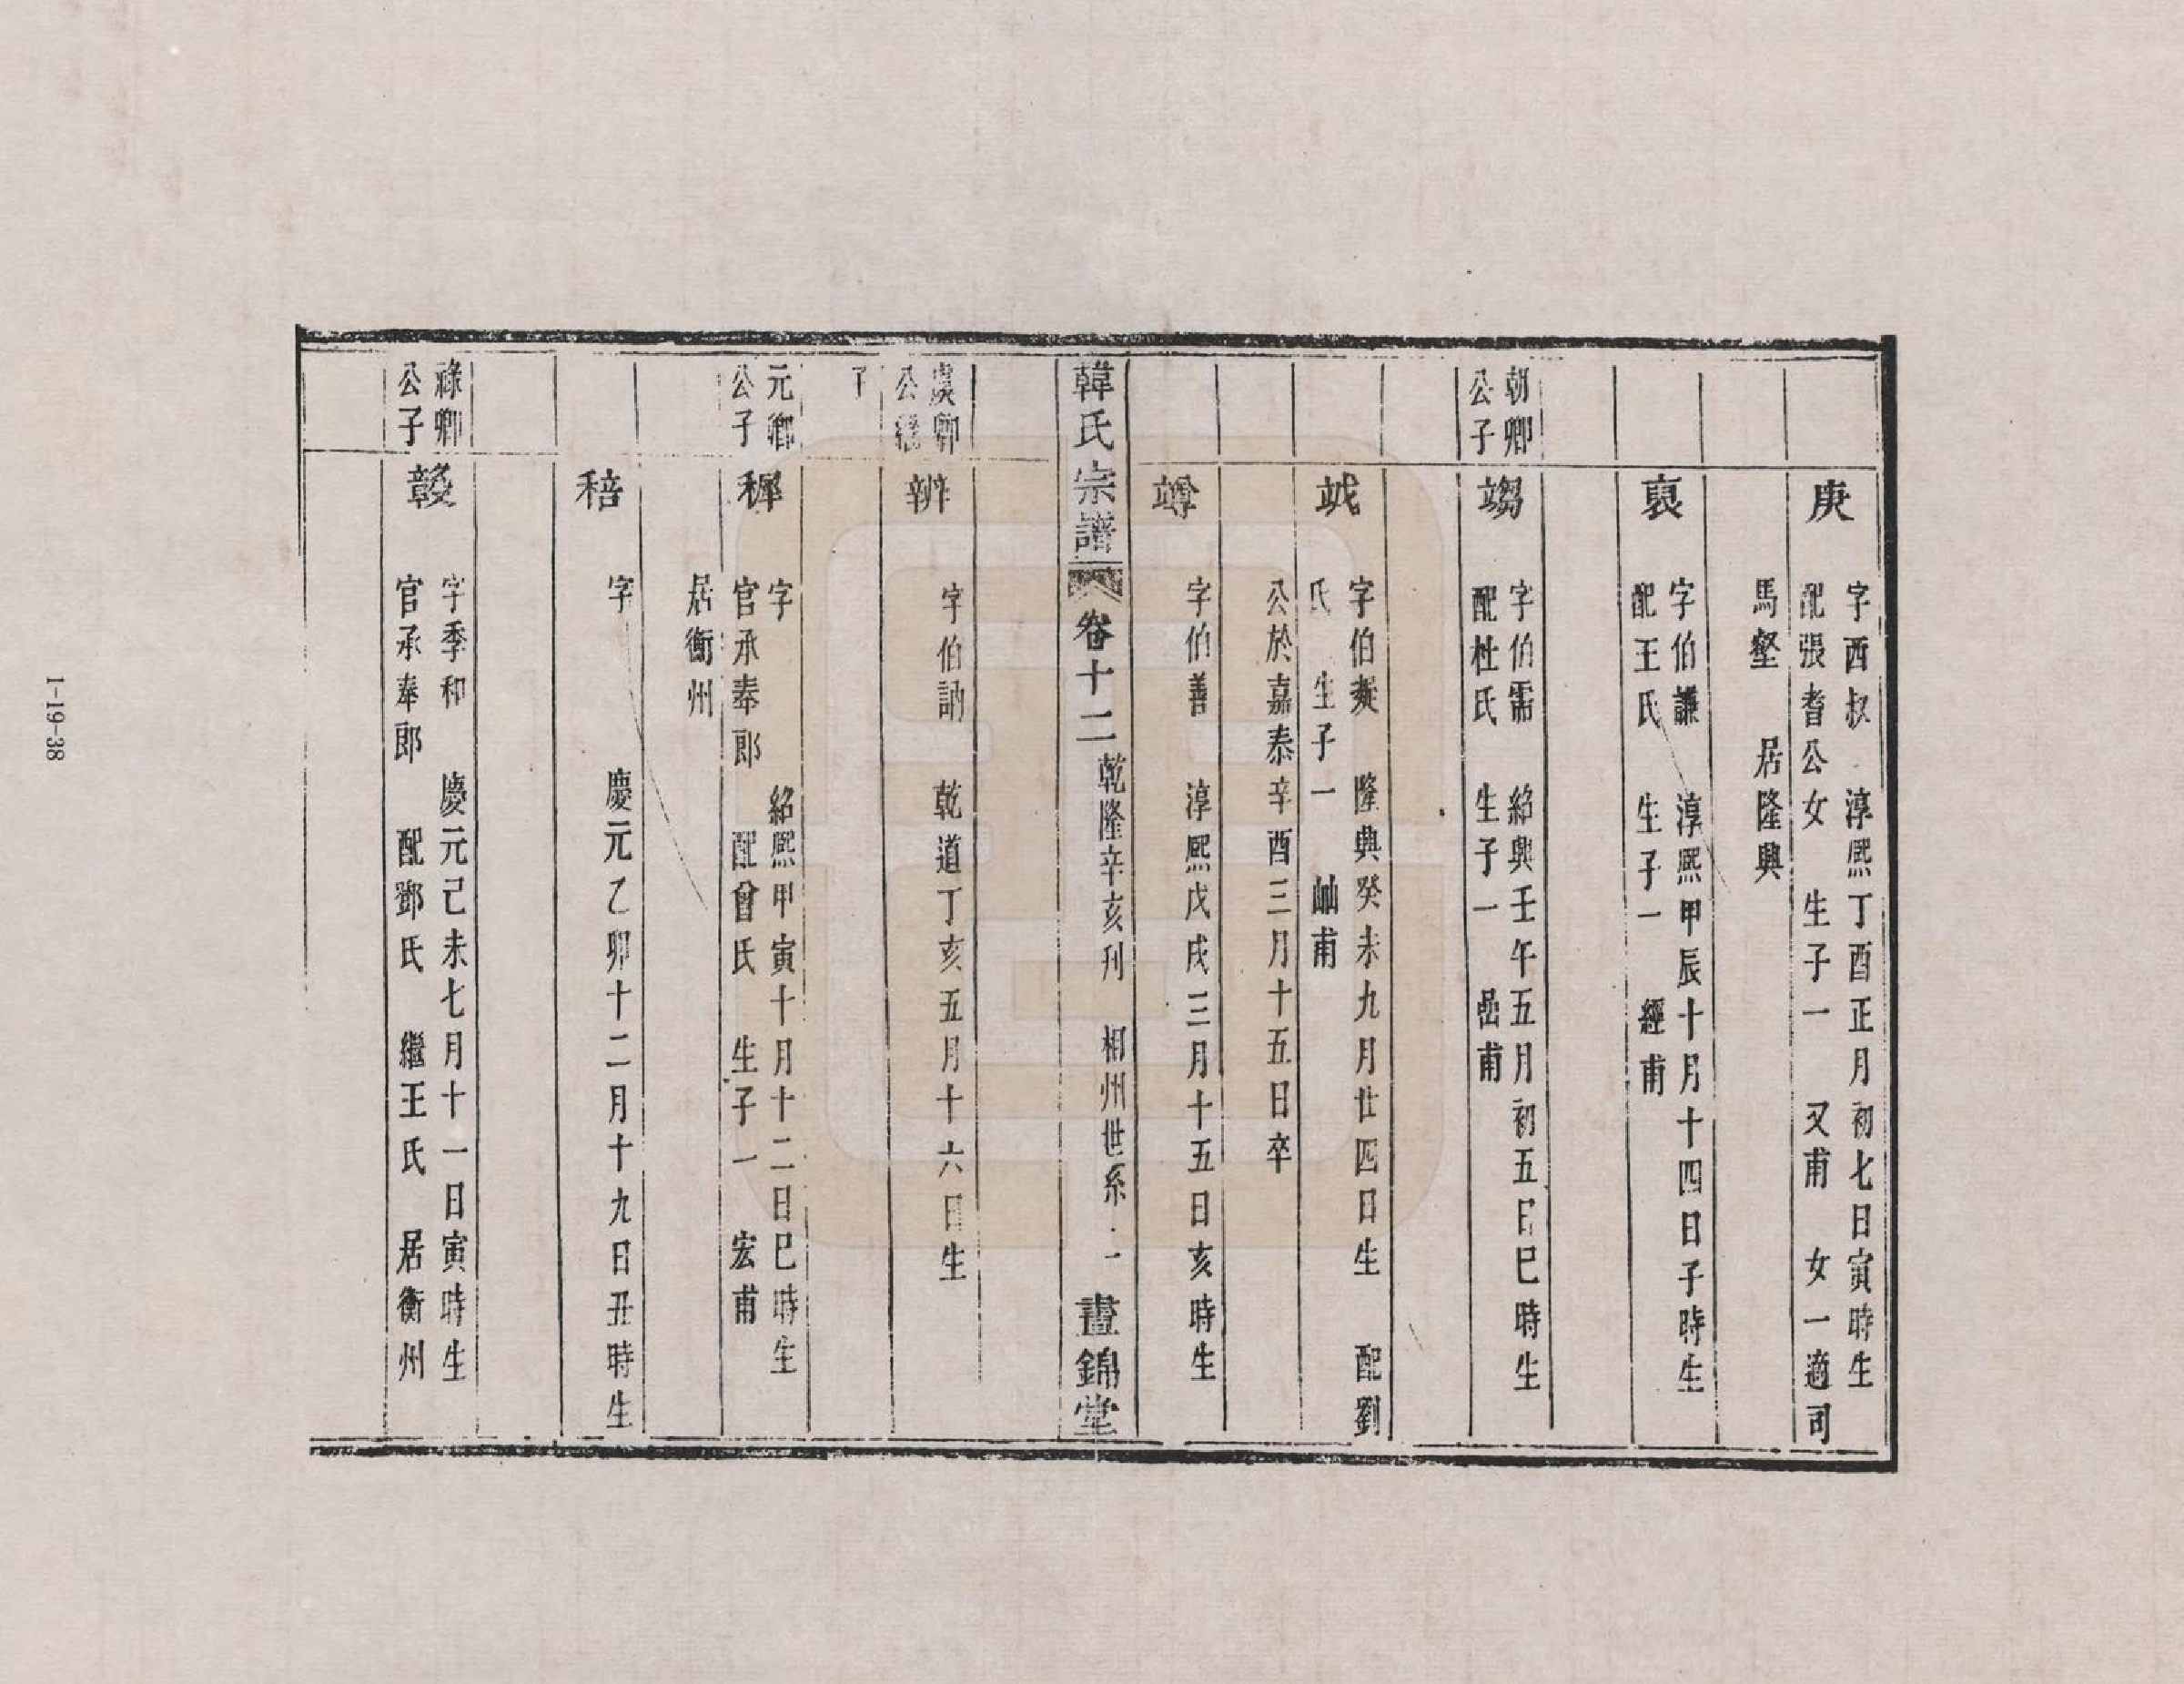 庚
字酉叔 淳熙丁酉正月初七日寅時生
配張耆公女 生子一 又甫 女一適司
馬壑 居隆興
裒
字伯謙 淳熙甲辰十月十四日子時生
配王氏 生子一 經甫
朝卿
公子
字伯需 紹興壬午五月初五日巳時生
配杜氏 生子一 嵒甫
字伯 隆興癸未九月廿四日生 配劉
氏 生子一 岫甫
公於嘉泰辛酉三月十五日卒
竴
字伯善 淳熙戊戌三月十五日亥時生
韓氏宗譜 卷十二 乾隆辛亥刊 相州世系 晝錦堂
虞卿
公繼
子
辨
字伯訥 乾道丁亥五月十六日生
元卿
公子
稺
字 紹熙甲寅十月十二日巳時生
官承奉郎 配曾氏 生子一 宏甫
居衡州
稖
字 慶元乙卯十二月十九日丑時生
祿卿
公子
字季和 慶元己未七月十一日寅時生
官承奉郎 配鄧氏 繼王氏 居衡州
1-19-38